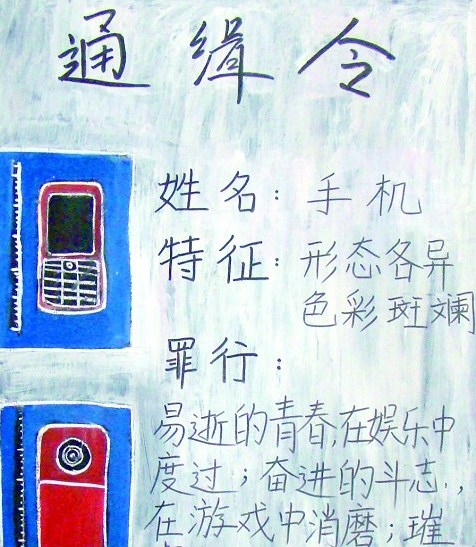 通缉令
姓名：手机
特征：形态各异
色彩斑斓
罪行：
易逝的青春，在娱乐中
度过；奋进的斗志，
在游戏中消磨；璀